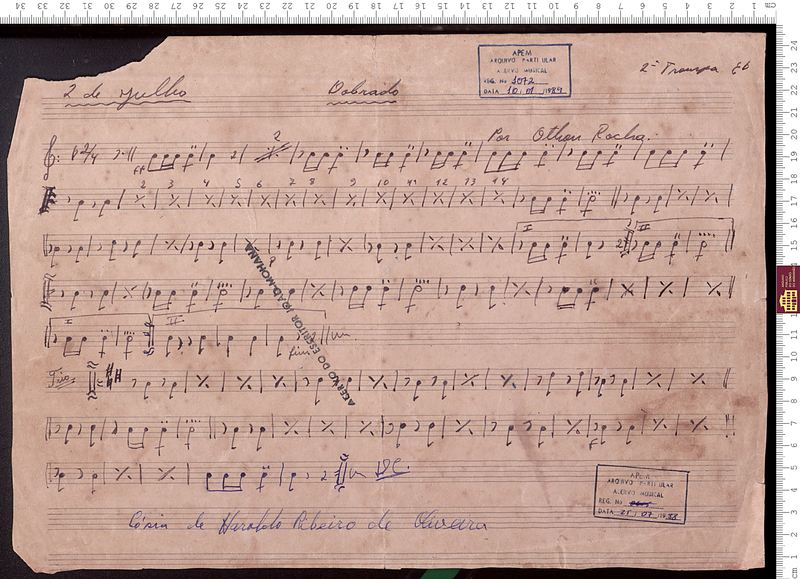 APEM
ARQUIVO PARTICULAR
ACERVO MUSICAL
REG. No 1072
DATA 10 / 01 / 1984
2ª Trompa Eb
2 de Julho Dobrado
Por Othon Rocha.
2
ff
2 3 4 5 6 7 8 9 10 11 12 13 14
I II
I II
fim
ACERVO DO ESCRITOR JOÃO MOHANA
Trio
f
2 DC.
APEM
ARQUIVO PARTICULAR
ACERVO MUSICAL
REG. No
DATA 21 / 07 / 1988
Cópia de Heraldo Ribeiro de Oliveira